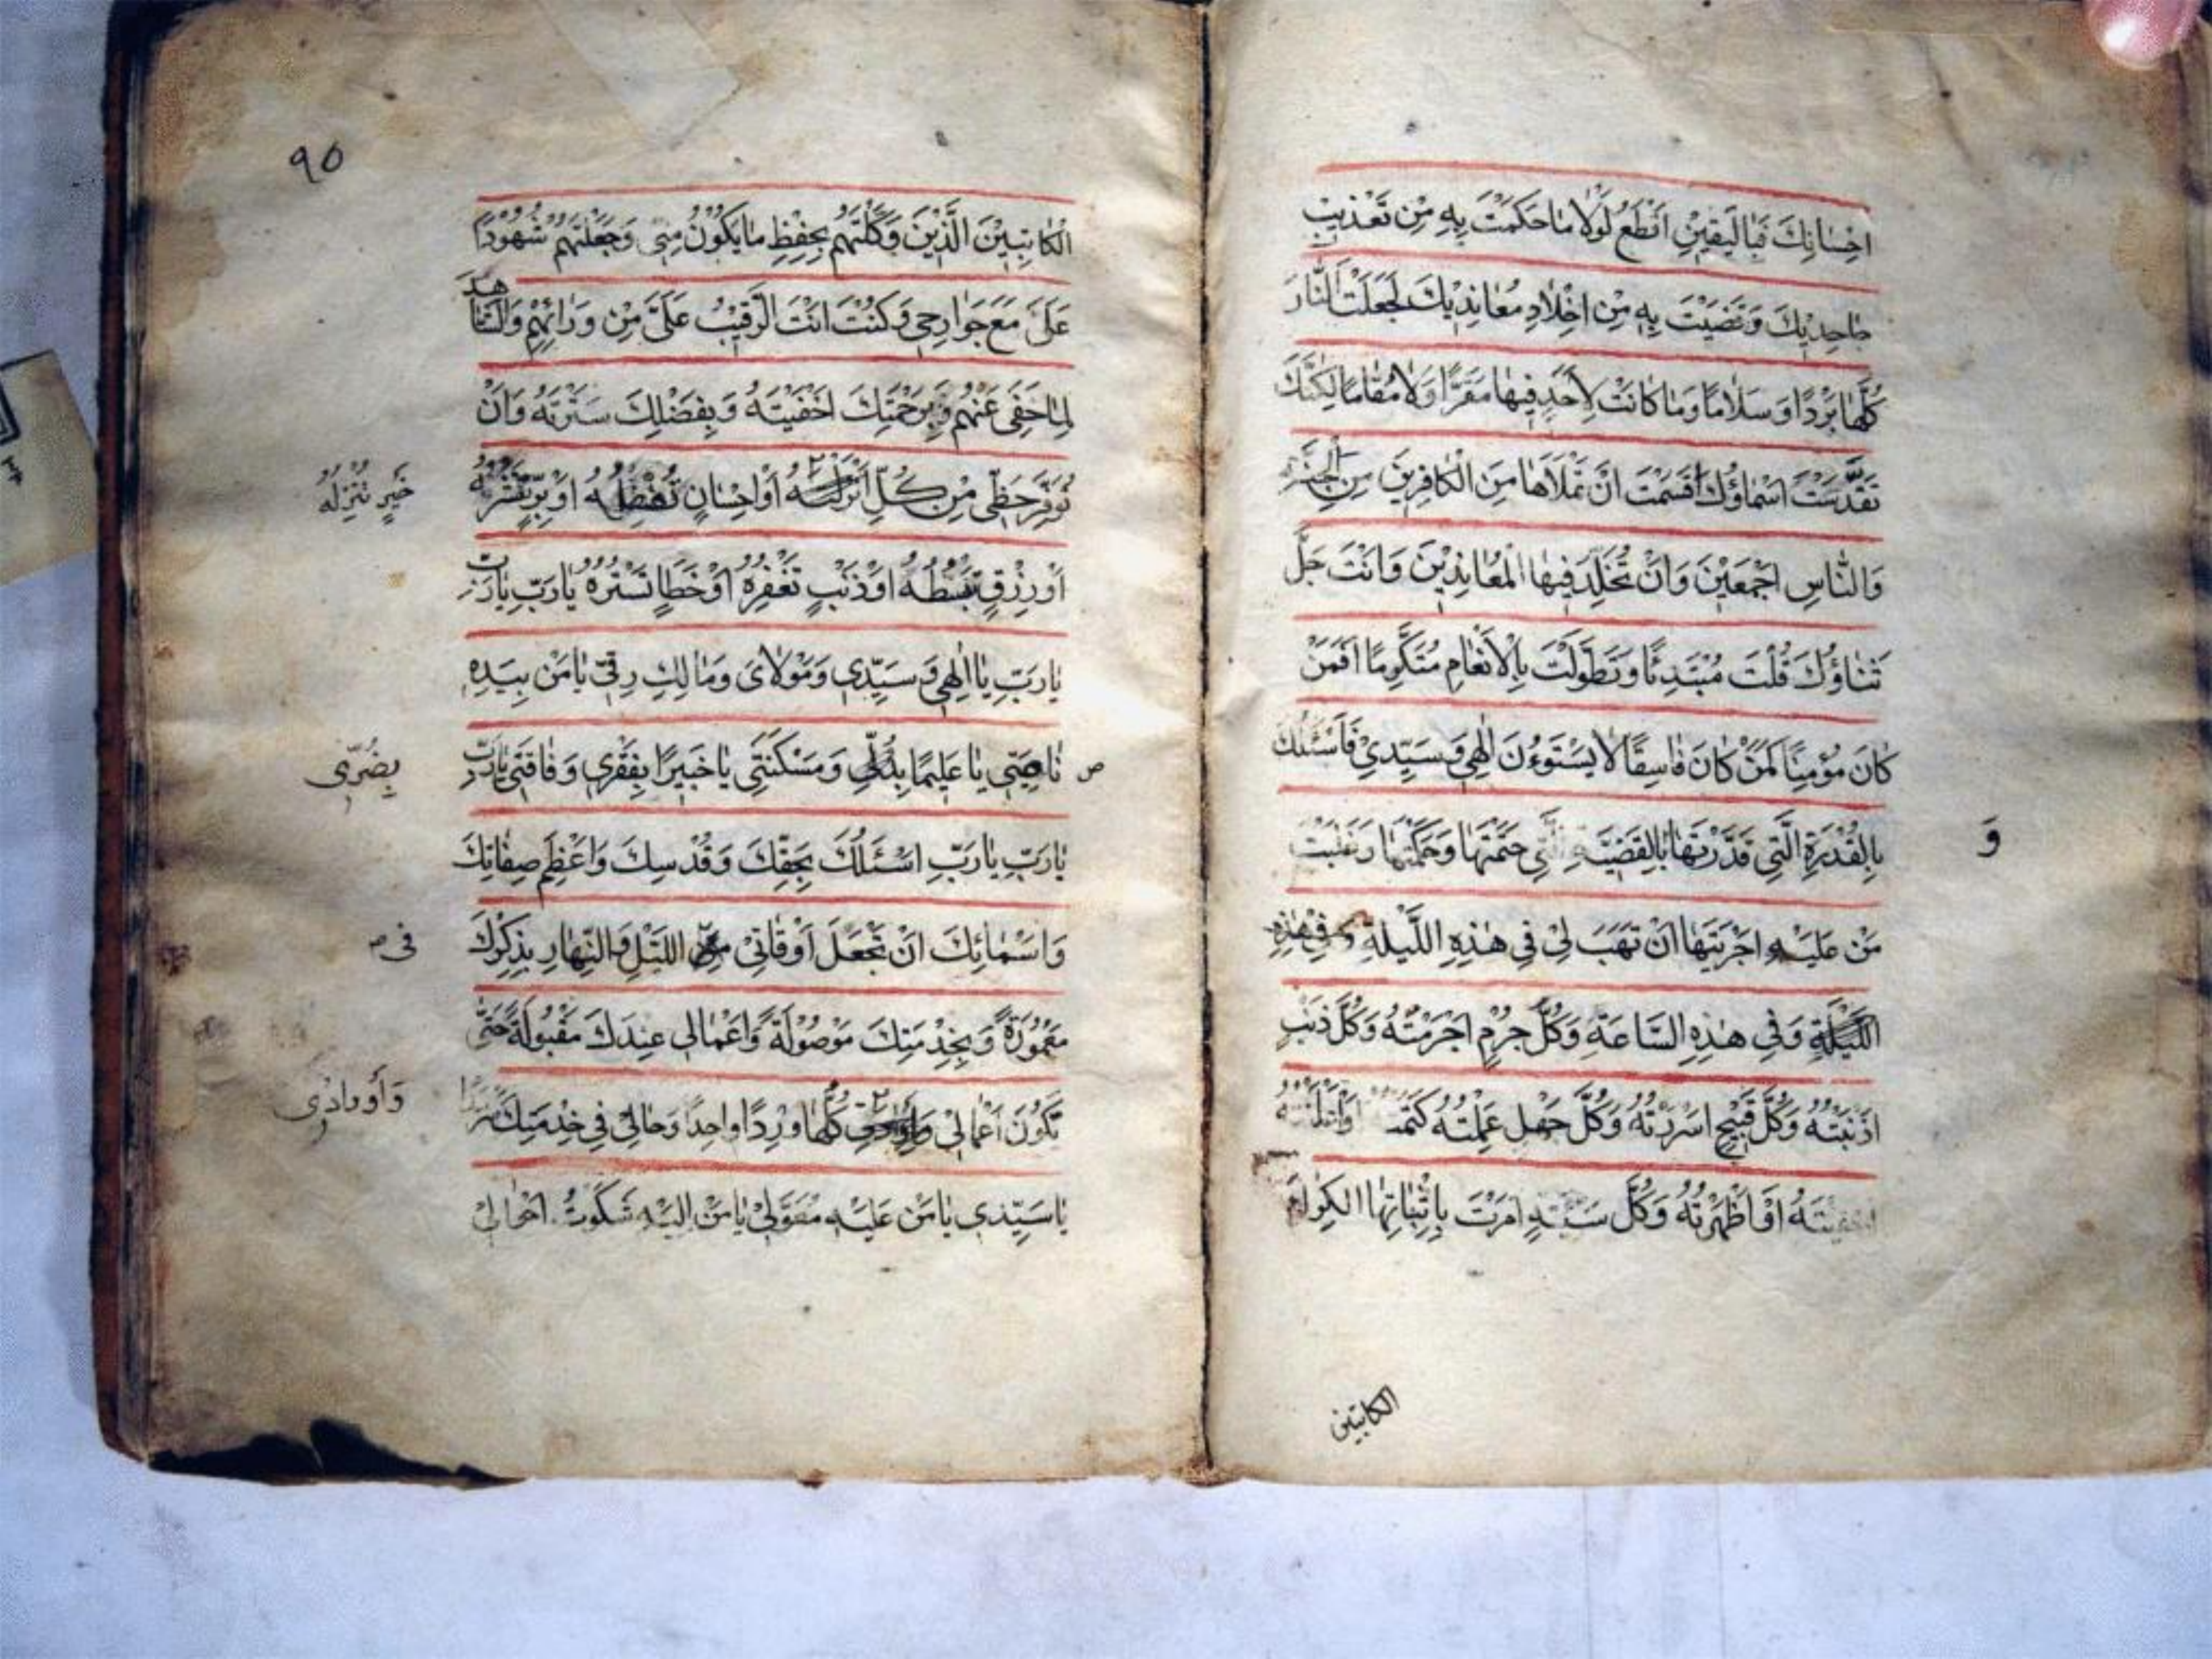 احْسَانِكَ فَبِالْيَقِينِ اَقْطَعُ لَوْلَا مَا حَكَمْتَ بِهِ مِنْ تَعْذِيبِ
جَاحِدِيكَ وَقَضَيْتَ بِهِ مِنْ اِخْلَادِ مُعَانِدِيكَ لَجَعَلْتَ النَّارَ
كُلَّهَا بَرْدًا وَسَلَامًا وَمَا كَانَتْ لِاَحَدٍ فِيهَا مَقَرًّا وَلَا مُقَامًا لَكِنَّكَ
تَقَدَّسَتْ اَسْمَاؤُكَ اَقْسَمْتَ اَنْ تَمْلَاَهَا مِنَ الْكَافِرِينَ مِنَ الْجِنَّةِ
وَالنَّاسِ اَجْمَعِينَ وَاَنْ تُخَلِّدَ فِيهَا الْمُعَانِدِينَ وَاَنْتَ جَلَّ
ثَنَاؤُكَ قُلْتَ مُبْتَدِئًا وَتَطَوَّلْتَ بِالْاِنْعَامِ مُتَكَرِّمًا اَفَمَنْ
كَانَ مُؤْمِنًا كَمَنْ كَانَ فَاسِقًا لَا يَسْتَوُونَ اِلٰهِي وَسَيِّدِي فَاَسْئَلُكَ
بِالْقُدْرَةِ الَّتِي قَدَّرْتَهَا بِالْقَضِيَّةِ الَّتِي حَتَمْتَهَا وَحَكَمْتَهَا وَغَلَبْتَ
وَ
مَنْ عَلَيْهِ اَجْرَيْتَهَا اَنْ تَهَبَ لِي فِي هٰذِهِ اللَّيْلَةِ وَفِي هٰذِهِ
اللَّيْلَةِ وَفِي هٰذِهِ السَّاعَةِ وَكُلَّ جُرْمٍ اَجْرَمْتُهُ وَكُلَّ ذَنْبٍ
اَذْنَبْتُهُ وَكُلَّ قَبِيحٍ اَسْرَرْتُهُ وَكُلَّ جَهْلٍ عَمِلْتُهُ كَتَمْتُهُ اَوْ اَعْلَنْتُهُ
اَخْفَيْتُهُ اَوْ اَظْهَرْتُهُ وَكُلَّ سَيِّئَةٍ اَمَرْتَ بِاِثْبَاتِهَا الْكِرَامَ
الكاتبين
٩٥
الْكَاتِبِينَ الَّذِينَ وَكَّلْتَهُمْ بِحِفْظِ مَا يَكُونُ مِنِّي وَجَعَلْتَهُمْ شُهُودًا
عَلَيَّ مَعَ جَوَارِحِي وَكُنْتَ اَنْتَ الرَّقِيبَ عَلَيَّ مِنْ وَرَائِهِمْ وَالشَّاهِدَ
لِمَا خَفِيَ عَنْهُمْ وَبِرَحْمَتِكَ اَخْفَيْتَهُ وَبِفَضْلِكَ سَتَرْتَهُ وَاَنْ
تُوَفِّرَ حَظِّي مِنْ كُلِّ اَنْزَلْتَهُ اَوْ اِحْسَانٍ تُفْضِلُهُ اَوْ بِرٍّ تَنْشُرُهُ
خَيْرٍ تُنْزِلُهُ
اَوْ رِزْقٍ تَبْسُطُهُ اَوْ ذَنْبٍ تَغْفِرُهُ اَوْ خَطَاٍ تَسْتُرُهُ يَا رَبِّ يَا رَبِّ
يَا رَبِّ يَا اِلٰهِي وَسَيِّدِي وَمَوْلَايَ وَمَالِكَ رِقِّي يَا مَنْ بِيَدِهِ
نَاصِيَتِي يَا عَلِيمًا بِذُلِّي وَمَسْكَنَتِي يَا خَبِيرًا بِفَقْرِي وَفَاقَتِي يَا رَبِّ
ص
بِضُرِّي
يَا رَبِّ يَا رَبِّ اَسْئَلُكَ بِحَقِّكَ وَقُدْسِكَ وَاَعْظَمِ صِفَاتِكَ
وَاَسْمَائِكَ اَنْ تَجْعَلَ اَوْقَاتِي مِنَ اللَّيْلِ وَالنَّهَارِ بِذِكْرِكَ
فى ص
مَعْمُورَةً وَبِخِدْمَتِكَ مَوْصُولَةً وَاَعْمَالِي عِنْدَكَ مَقْبُولَةً حَتَّى
تَكُونَ اَعْمَالِي كُلُّهَا وِرْدًا وَاحِدًا وَحَالِي فِي خِدْمَتِكَ سَرْمَدًا
وَأَوْرَادِي
يَا سَيِّدِي يَا مَنْ عَلَيْهِ مُعَوَّلِي يَا مَنْ اِلَيْهِ شَكَوْتُ اَحْوَالِي